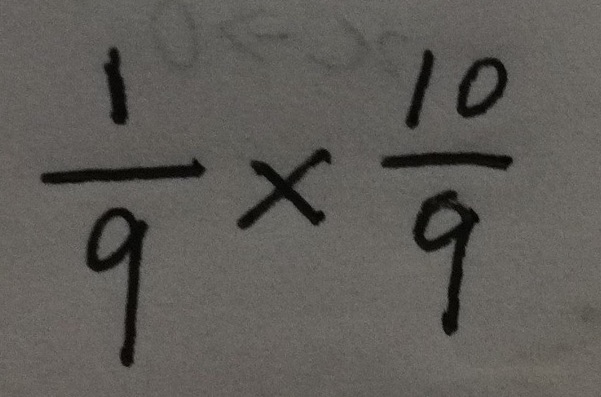 1/9 × 10/9